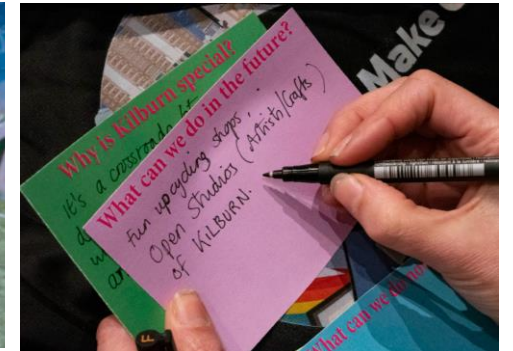 Make
Why is Kilburn special?
It's a crossroads
What can we do in the future?
fun upcycling shops,
Open Studios (Artists/Crafts)
of KILBURN.
What can we do no
F